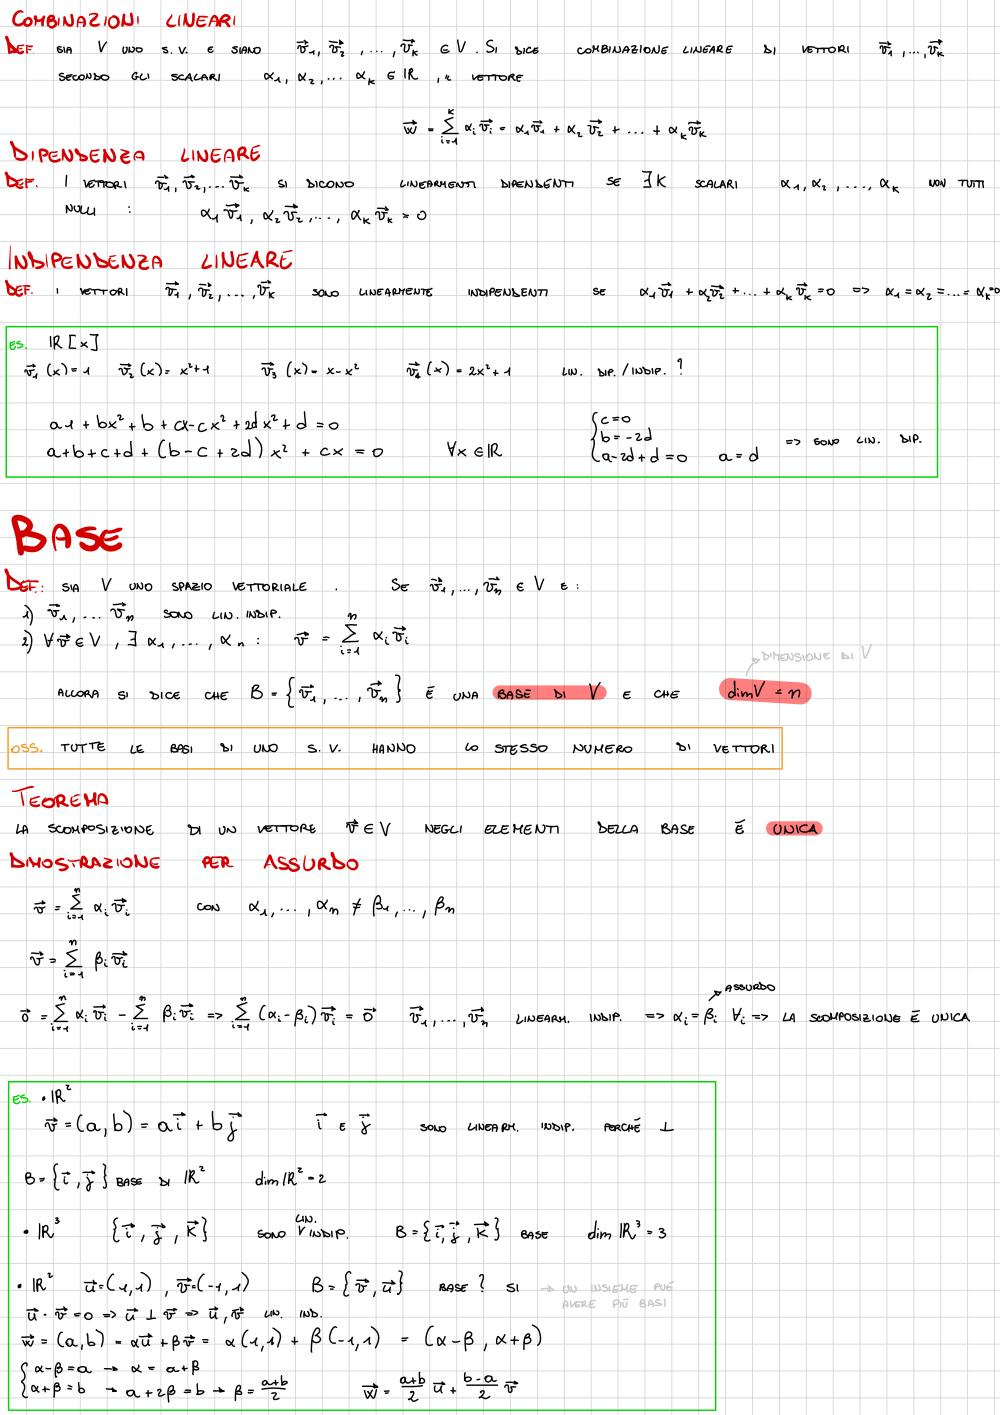 COMBINAZIONI LINEARI
DEF SIA V UNO S.V. E SIANO v⃗₁, v⃗₂, ..., v⃗ₖ ∈ V. SI DICE COMBINAZIONE LINEARE DI VETTORI v⃗₁, ..., v⃗ₖ
SECONDO GLI SCALARI α₁, α₂, ... αₖ ∈ ℝ, IL VETTORE
w⃗ = ∑ᵢ₌₁ᵏ αᵢv⃗ᵢ = α₁v⃗₁ + α₂v⃗₂ + ... + αₖv⃗ₖ
DIPENDENZA LINEARE
DEF. I VETTORI v⃗₁, v⃗₂, ... v⃗ₖ SI DICONO LINEARMENTI DIPENDENTI SE ∃K SCALARI α₁, α₂, ..., αₖ NON TUTTI
NULLI : α₁v⃗₁, α₂v⃗₂, ..., αₖv⃗ₖ = 0
INDIPENDENZA LINEARE
DEF. I VETTORI v⃗₁, v⃗₂, ..., v⃗ₖ SONO LINEARMENTE INDIPENDENTI SE α₁v⃗₁ + α₂v⃗₂ + ... + αₖv⃗ₖ = 0 => α₁ = α₂ = ... = αₖ = 0
ES. ℝ[x]
v⃗₁(x) = 1 v⃗₂(x) = x²+1 v⃗₃(x) = x-x² v⃗₄(x) = 2x²+1 LIN. DIP./INDIP. ?
a1 + bx² + b + cx - cx² + 2dx² + d = 0
a+b+c+d + (b-c+2d)x² + cx = 0 ∀x ∈ ℝ
{c=0
b=-2d
a-2d+d=0 a=d => SONO LIN. DIP.
BASE
DEF.: SIA V UNO SPAZIO VETTORIALE . SE v⃗₁, ..., v⃗ₙ ∈ V E :
1) v⃗₁, ... v⃗ₙ SONO LIN. INDIP.
2) ∀v⃗ ∈ V, ∃ α₁, ..., αₙ : v⃗ = ∑ᵢ₌₁ⁿ αᵢv⃗ᵢ
DIMENSIONE DI V
ALLORA SI DICE CHE B = {v⃗₁, ..., v⃗ₙ} È UNA BASE DI V E CHE dimV = n
OSS. TUTTE LE BASI DI UNO S.V. HANNO LO STESSO NUMERO DI VETTORI
TEOREMA
LA SCOMPOSIZIONE DI UN VETTORE v⃗ ∈ V NEGLI ELEMENTI DELLA BASE È UNICA
DIMOSTRAZIONE PER ASSURDO
v⃗ = ∑ᵢ₌₁ⁿ αᵢv⃗ᵢ CON α₁, ..., αₙ ≠ β₁, ..., βₙ
v⃗ = ∑ᵢ₌₁ⁿ βᵢv⃗ᵢ
ASSURDO
0⃗ = ∑ᵢ₌₁ⁿ αᵢv⃗ᵢ - ∑ᵢ₌₁ⁿ βᵢv⃗ᵢ => ∑ᵢ₌₁ⁿ (αᵢ-βᵢ)v⃗ᵢ = 0⃗ v⃗₁, ..., v⃗ₙ LINEARM. INDIP. => αᵢ = βᵢ ∀ᵢ => LA SCOMPOSIZIONE È UNICA
ES. • ℝ²
v⃗ = (a,b) = ai⃗ + bj⃗ i⃗ E j⃗ SONO LINEARM. INDIP. PERCHÉ ⊥
B = {i⃗, j⃗} BASE DI ℝ² dimℝ² = 2
• ℝ³ {i⃗, j⃗, k⃗} SONO LIN. INDIP. B = {i⃗, j⃗, k⃗} BASE dim ℝ³ = 3
• ℝ² u⃗ = (1,1), v⃗ = (-1,1) B = {v⃗, u⃗} BASE ? SI → UN INSIEME PUÒ
AVERE PIÙ BASI
u⃗ · v⃗ = 0 => u⃗ ⊥ v⃗ => u⃗, v⃗ LIN. IND.
w⃗ = (a,b) = αu⃗ + βv⃗ = α(1,1) + β(-1,1) = (α-β, α+β)
{α-β=a → α = a+β
α+β=b → a+2β=b → β = (a+b)/2 w⃗ = (a+b)/2 u⃗ + (b-a)/2 v⃗